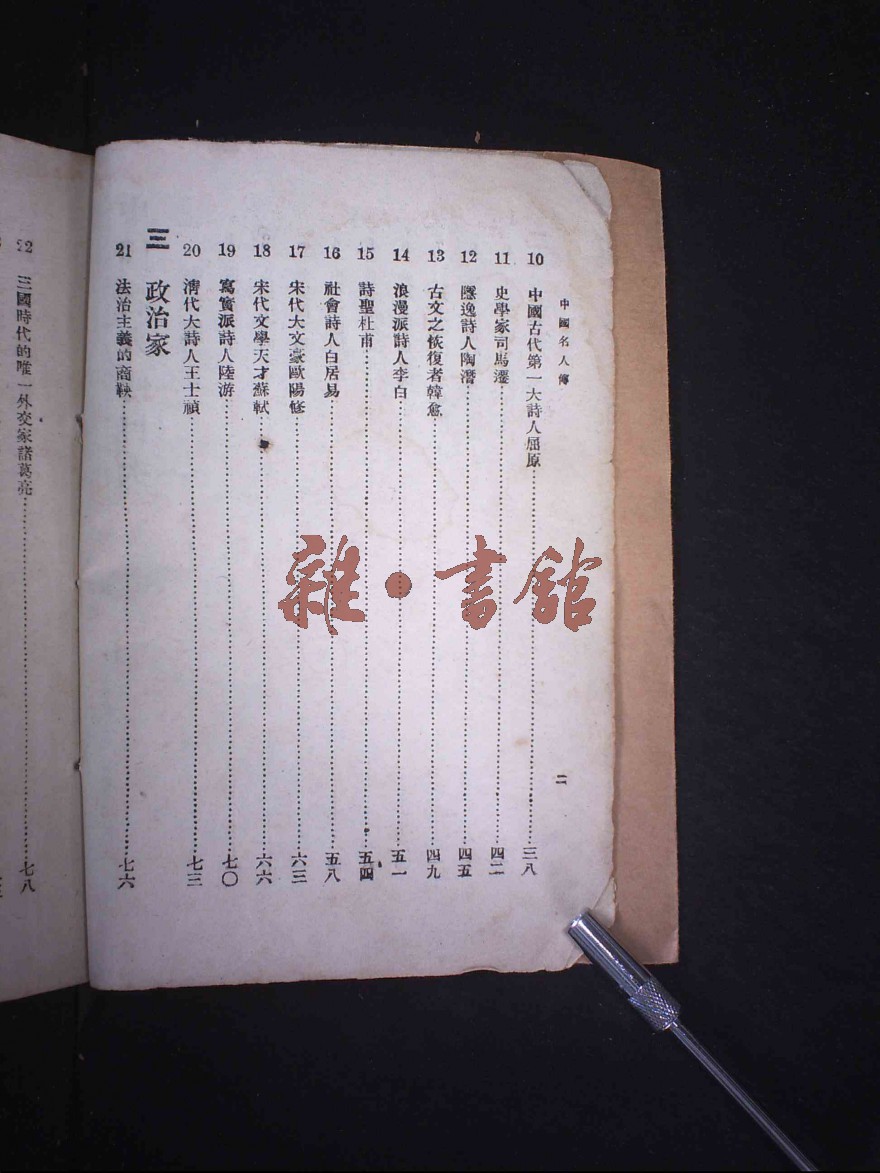 中國名人傳
二
10 中國古代第一大詩人屈原 三八
11 史學家司馬遷 四二
12 隱逸詩人陶潛 四五
13 古文之恢復者韓愈 四九
14 浪漫派詩人李白 五一
15 詩聖杜甫 五四
16 社會詩人白居易 五八
17 宋代大文豪歐陽修 六三
18 宋代文學天才蘇軾 六六
19 寫實派詩人陸游 七〇
20 清代大詩人王士禎 七三
三 政治家
21 法治主義的商鞅 七六
22 三國時代的唯一外交家諸葛亮 七八
雜·書館